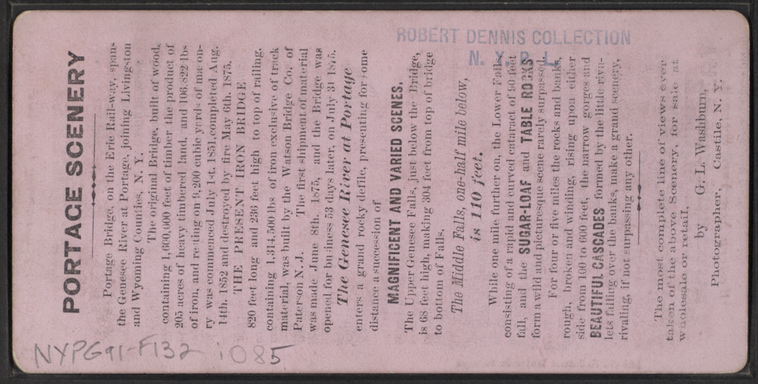 PORTAGE SCENERY
Portage Bridge, on the Erie Rail-way, spans
the Genesee River at Portage, joining Livingston
and Wyoming Counties, N. Y.
The original Bridge, built of wood,
containing 1,600,000 feet of timber the product of
205 acres of heavy timbered land, and 106,822 lbs
of iron, and resting on 9,200 cubic yards of mason-
ry was commenced July 1st. 1851, completed Aug.
14th. 1852 and destroyed by fire May 6th. 1875.
THE PRESENT IRON BRIDGE
820 feet long and 236 feet high to top of railing,
containing 1,314,500 lbs of iron exclusive of track
material, was built by the Watson Bridge Co., of
Paterson N. J. The first shipment of material
was made June 8th. 1875, and the Bridge was
opened for business 53 days later, on July 31 1875.
The Genesee River at Portage
enters a grand rocky defile, presenting for some
distance a succession of
MAGNIFICENT AND VARIED SCENES.
The Upper Genesee Falls, just below the Bridge,
is 68 feet high, making 304 feet from top of bridge
to bottom of Falls.
The Middle Falls, one-half mile below,
is 110 feet.
While one mile further on, the Lower Falls
consisting of a rapid and curved cataract of 50 feet
fall, and the SUGAR-LOAF and TABLE ROCKS
form a wild and picturesque scene rarely surpassed.
For four or five miles the rocks and banks,
rough, broken and winding, rising upon either
side from 100 to 600 feet, the narrow gorges and
BEAUTIFUL CASCADES formed by the little riv-
lets falling over the banks, make a grand scenery,
rivaling, if not surpassing any other.
The most complete line of views ever
taken of the above Scenery, for sale at
wholesale or retail,
by G. L. Washburn,
Photographer, Castile, N. Y.
ROBERT DENNIS COLLECTION
N. Y. P. L.
NYPG91-F132 1085